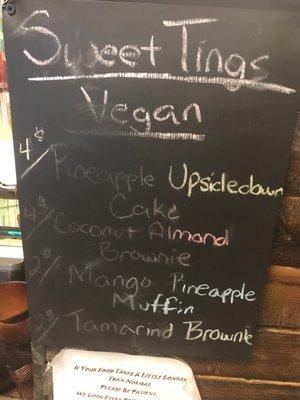 Sweet Tings
Vegan
4$/ Pineapple Upsidedown
Cake
4$/ Coconut Almond
Brownie
2$/ Mango Pineapple
Muffin
2$/ Tamarind Brownie
If Your Food Takes A Little Longer
Than Normal
Please Be Patient.
We Cook Every